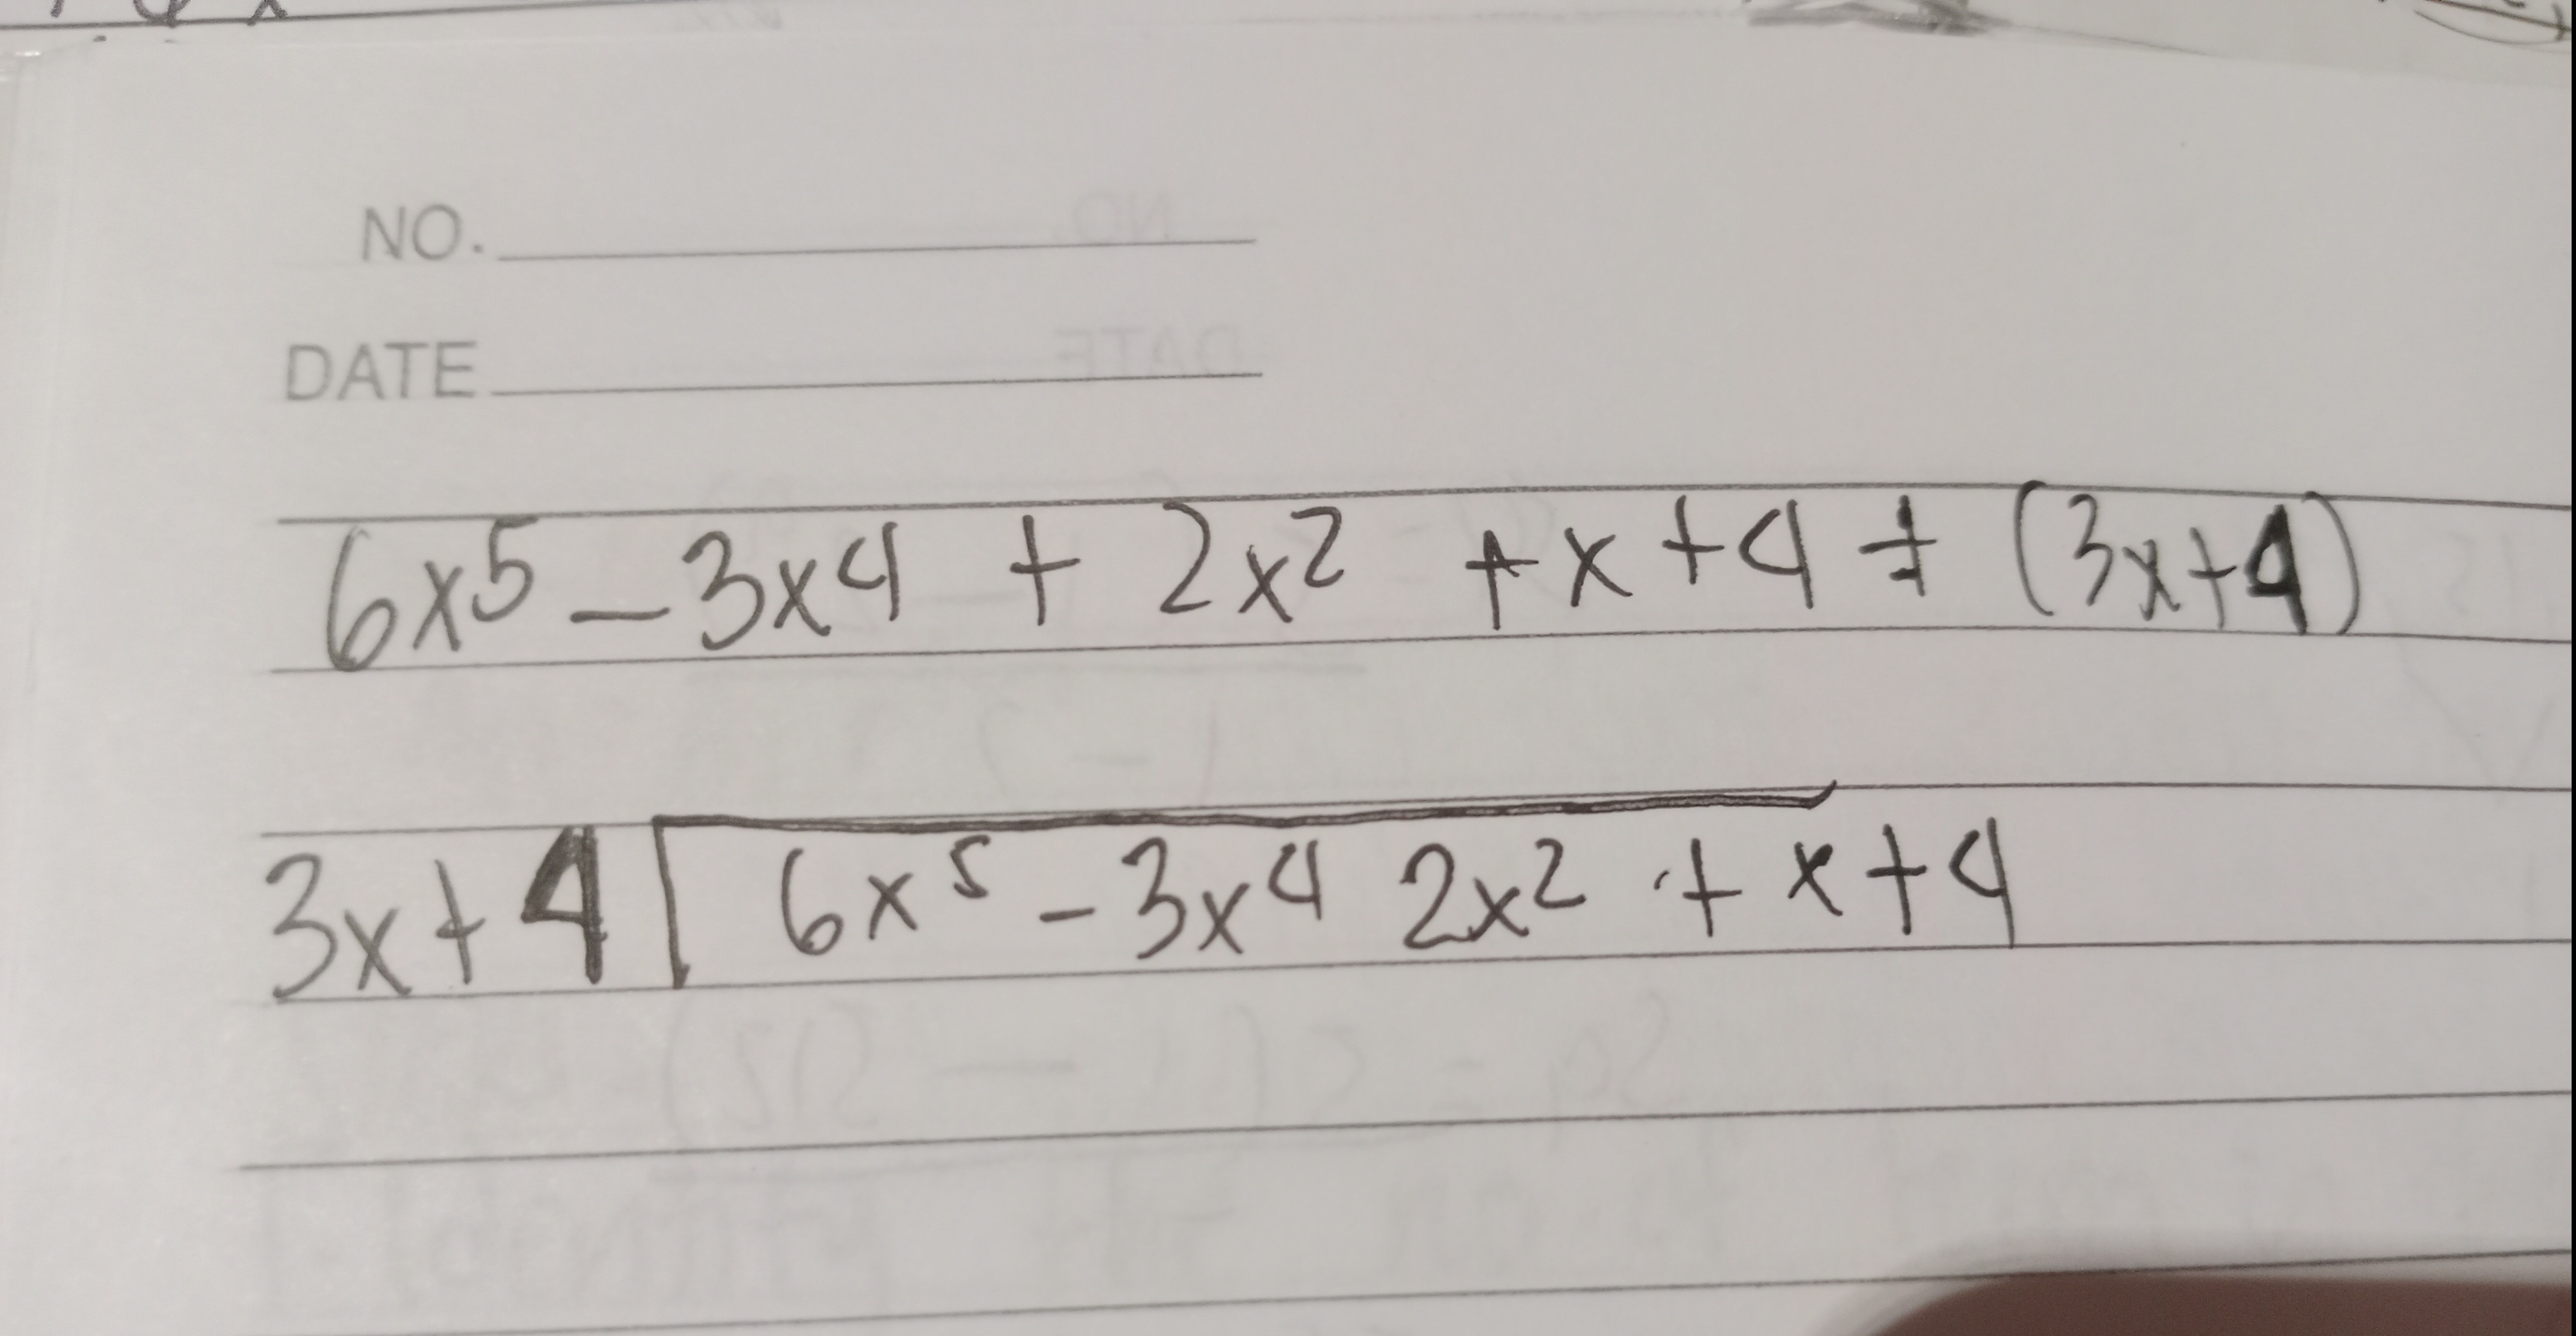 NO.
DATE
6x⁵ - 3x⁴ + 2x² + x + 4 ÷ (3x+4)
3x+4 6x⁵ - 3x⁴ 2x² + x + 4